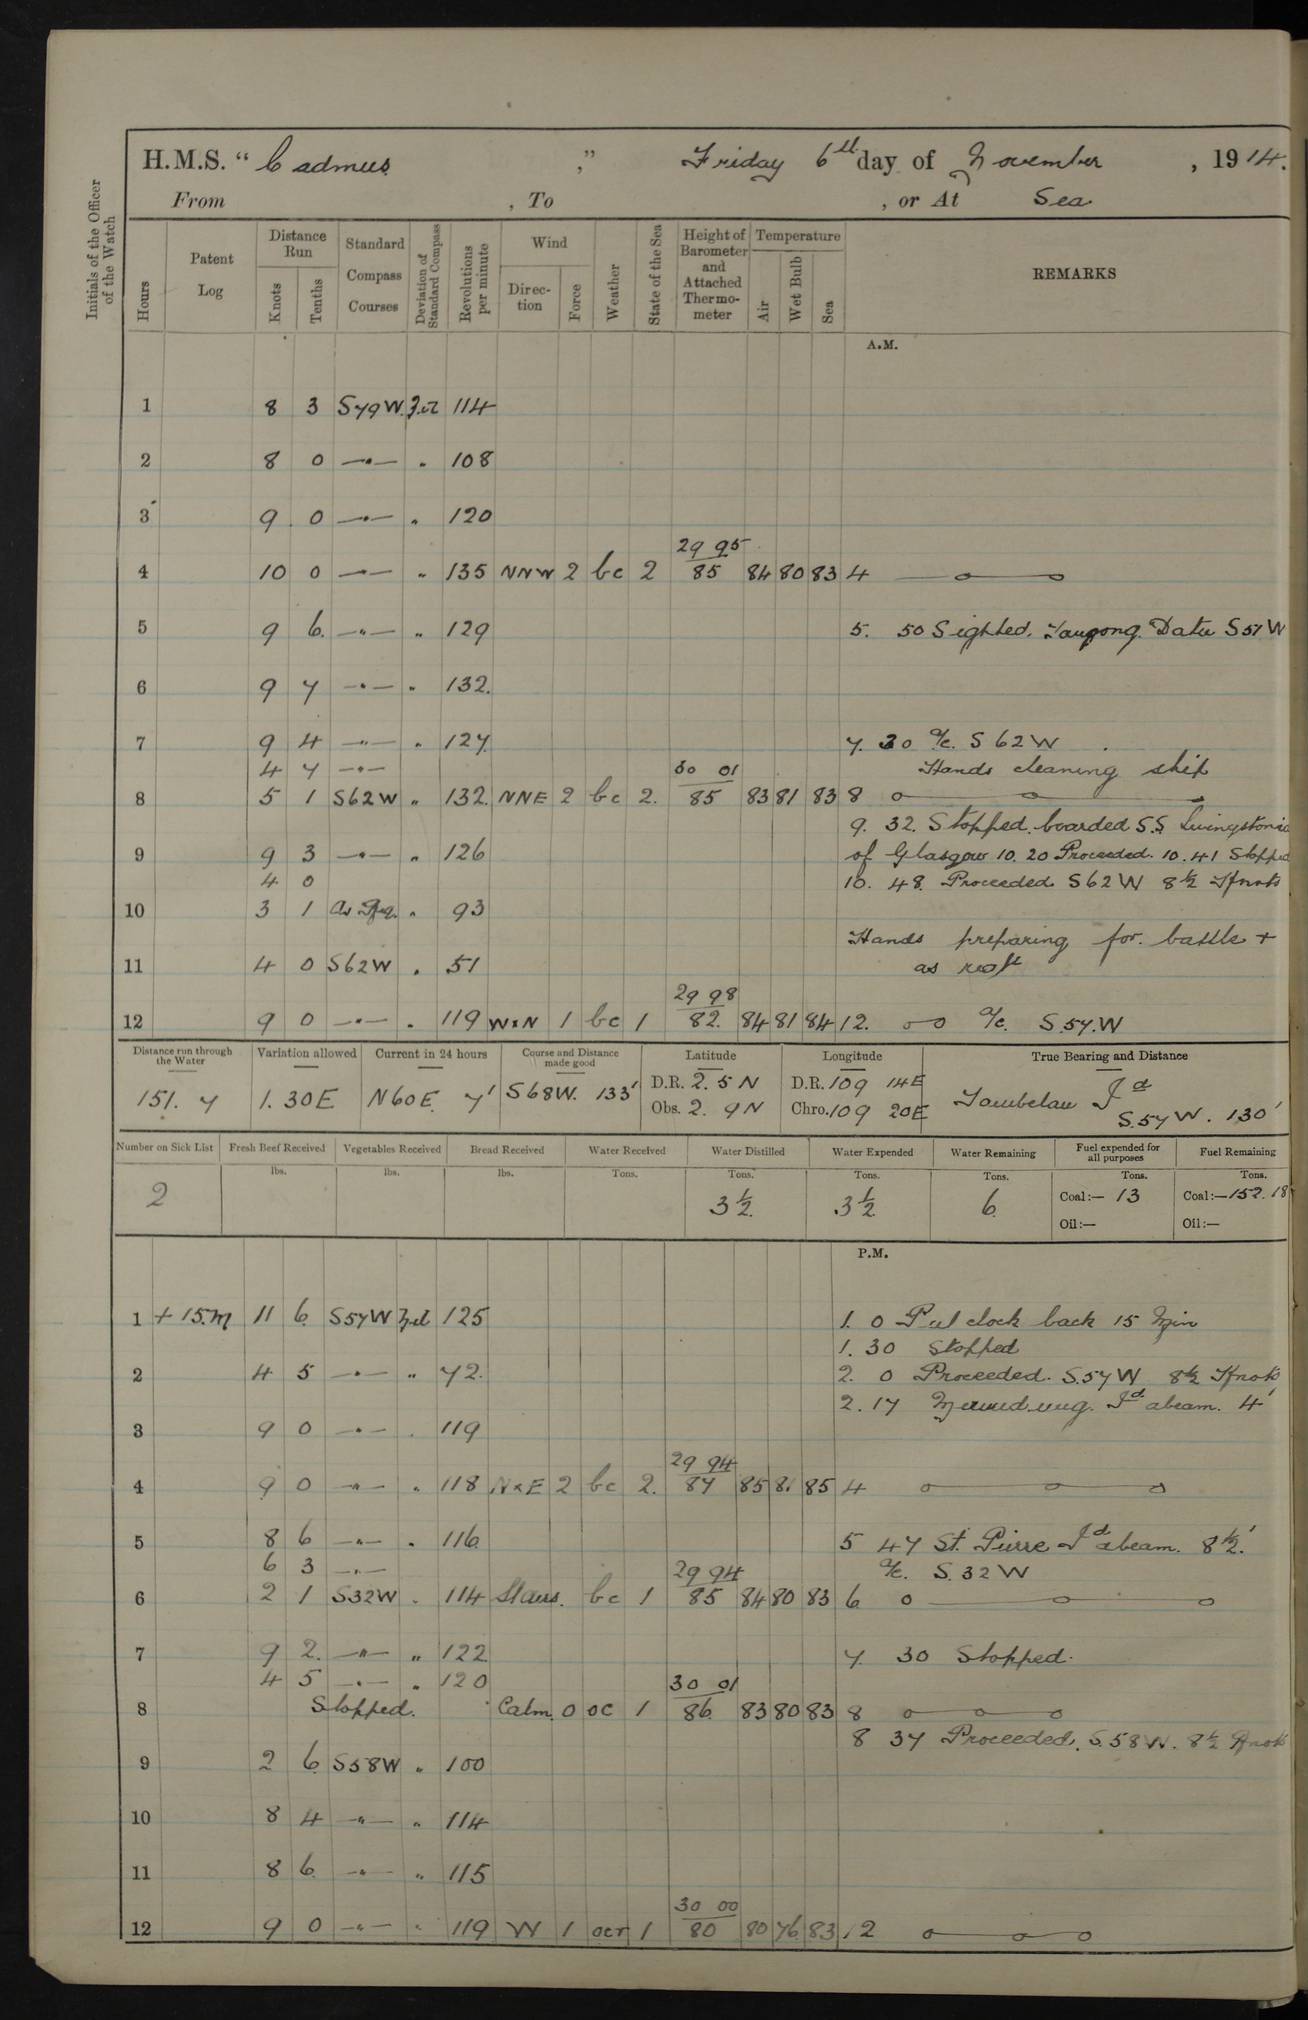 H.M.S. " Cadmus " Friday 6th day of November , 1914.
From , To , or At Sea
Initials of the Officer of the Watch
Hours Patent Log Distance Run Knots Tenths Standard Compass Courses Deviation of Standard Compass Revolutions per minute Wind Direc-tion Force Weather State of the Sea Height of Barometer and Attached Thermo-meter Temperature Air Wet Bulb Sea REMARKS
A.M.
1 8 3 S79W. 114
2 8 0 —"— " 108
3 9 0 —"— " 120
29 95
4 10 0 —"— " 135 NNW 2 bc 2 85 84 80 83 4
5 9 6. —"— " 129 5. 50 Sighted. Datu S51W
6 9 7 —"— " 132.
7 9 4 —"— " 127 7. 30 a/c. S 62 W
4 7 —"— 30 01 Hands cleaning ship
8 5 1 S62W " 132. NNE 2 bc 2. 85 83 81 83 8
9. 32. Stopped. boarded S.S. Livingstonia
9 9 3 —"— " 126 of Glasgow 10. 20 Proceeded. 10. 41 Stopped
4 0 10. 48. Proceeded S62W 8½ Knots
10 3 1 as Req. " 93
Hands preparing for battle +
11 4 0 S62W " 51 as reqd
29 98
12 9 0 —"— " 119 WxN 1 bc 1 82. 84 81 84 12. a/c. S.57.W
Distance run through the Water Variation allowed Current in 24 hours Course and Distance made good Latitude Longitude True Bearing and Distance
151. 7 1. 30E N60E. 7' S68W. 133' D.R. 2. 5 N D.R. 109 14E Tambelan Id
Obs. 2. 9N Chro. 109 20E S.57W. 130'
Number on Sick List Fresh Beef Received Vegetables Received Bread Received Water Received Water Distilled Water Expended Water Remaining Fuel expended for all purposes Fuel Remaining
lbs. lbs. lbs. Tons. Tons. Tons. Tons. Tons. Tons.
2 3½ 3½ 6 Coal:— 13 Coal:—152. 18
Oil:— Oil:—
P.M.
1 + 15.m 11 6 S57W Nil 125 1. 0 Put clock back 15 Min
1. 30 Stopped
2 4 5 —"— " 72. 2. 0 Proceeded. S.57W 8½ Knots
2. 17 Id abeam. 4'
3 9 0 —"— " 119
29 94
4 9 0 —"— " 118 NxE 2 bc 2. 87 85 81 85 4
5 8 6 —"— " 116 5 47 St. Pierre Id abeam. 8½'.
6 3 —"— 29 94 a/c. S. 32 W
6 2 1 S32W " 114 Stairs. bc 1 85 84 80 83 6
7 9 2. —"— " 122 7. 30 Stopped.
4 5 —"— " 120 30 01
8 Stopped. Calm. 0 oc 1 86. 83 80 83 8
8 37 Proceeded. S.58W. 8½ Knots
9 2 6 S58W " 100
10 8 4 —"— " 114
11 8 6 —"— " 115
30 00
12 9 0 —"— " 119 W 1 ocr 1 80 80 76 83 12